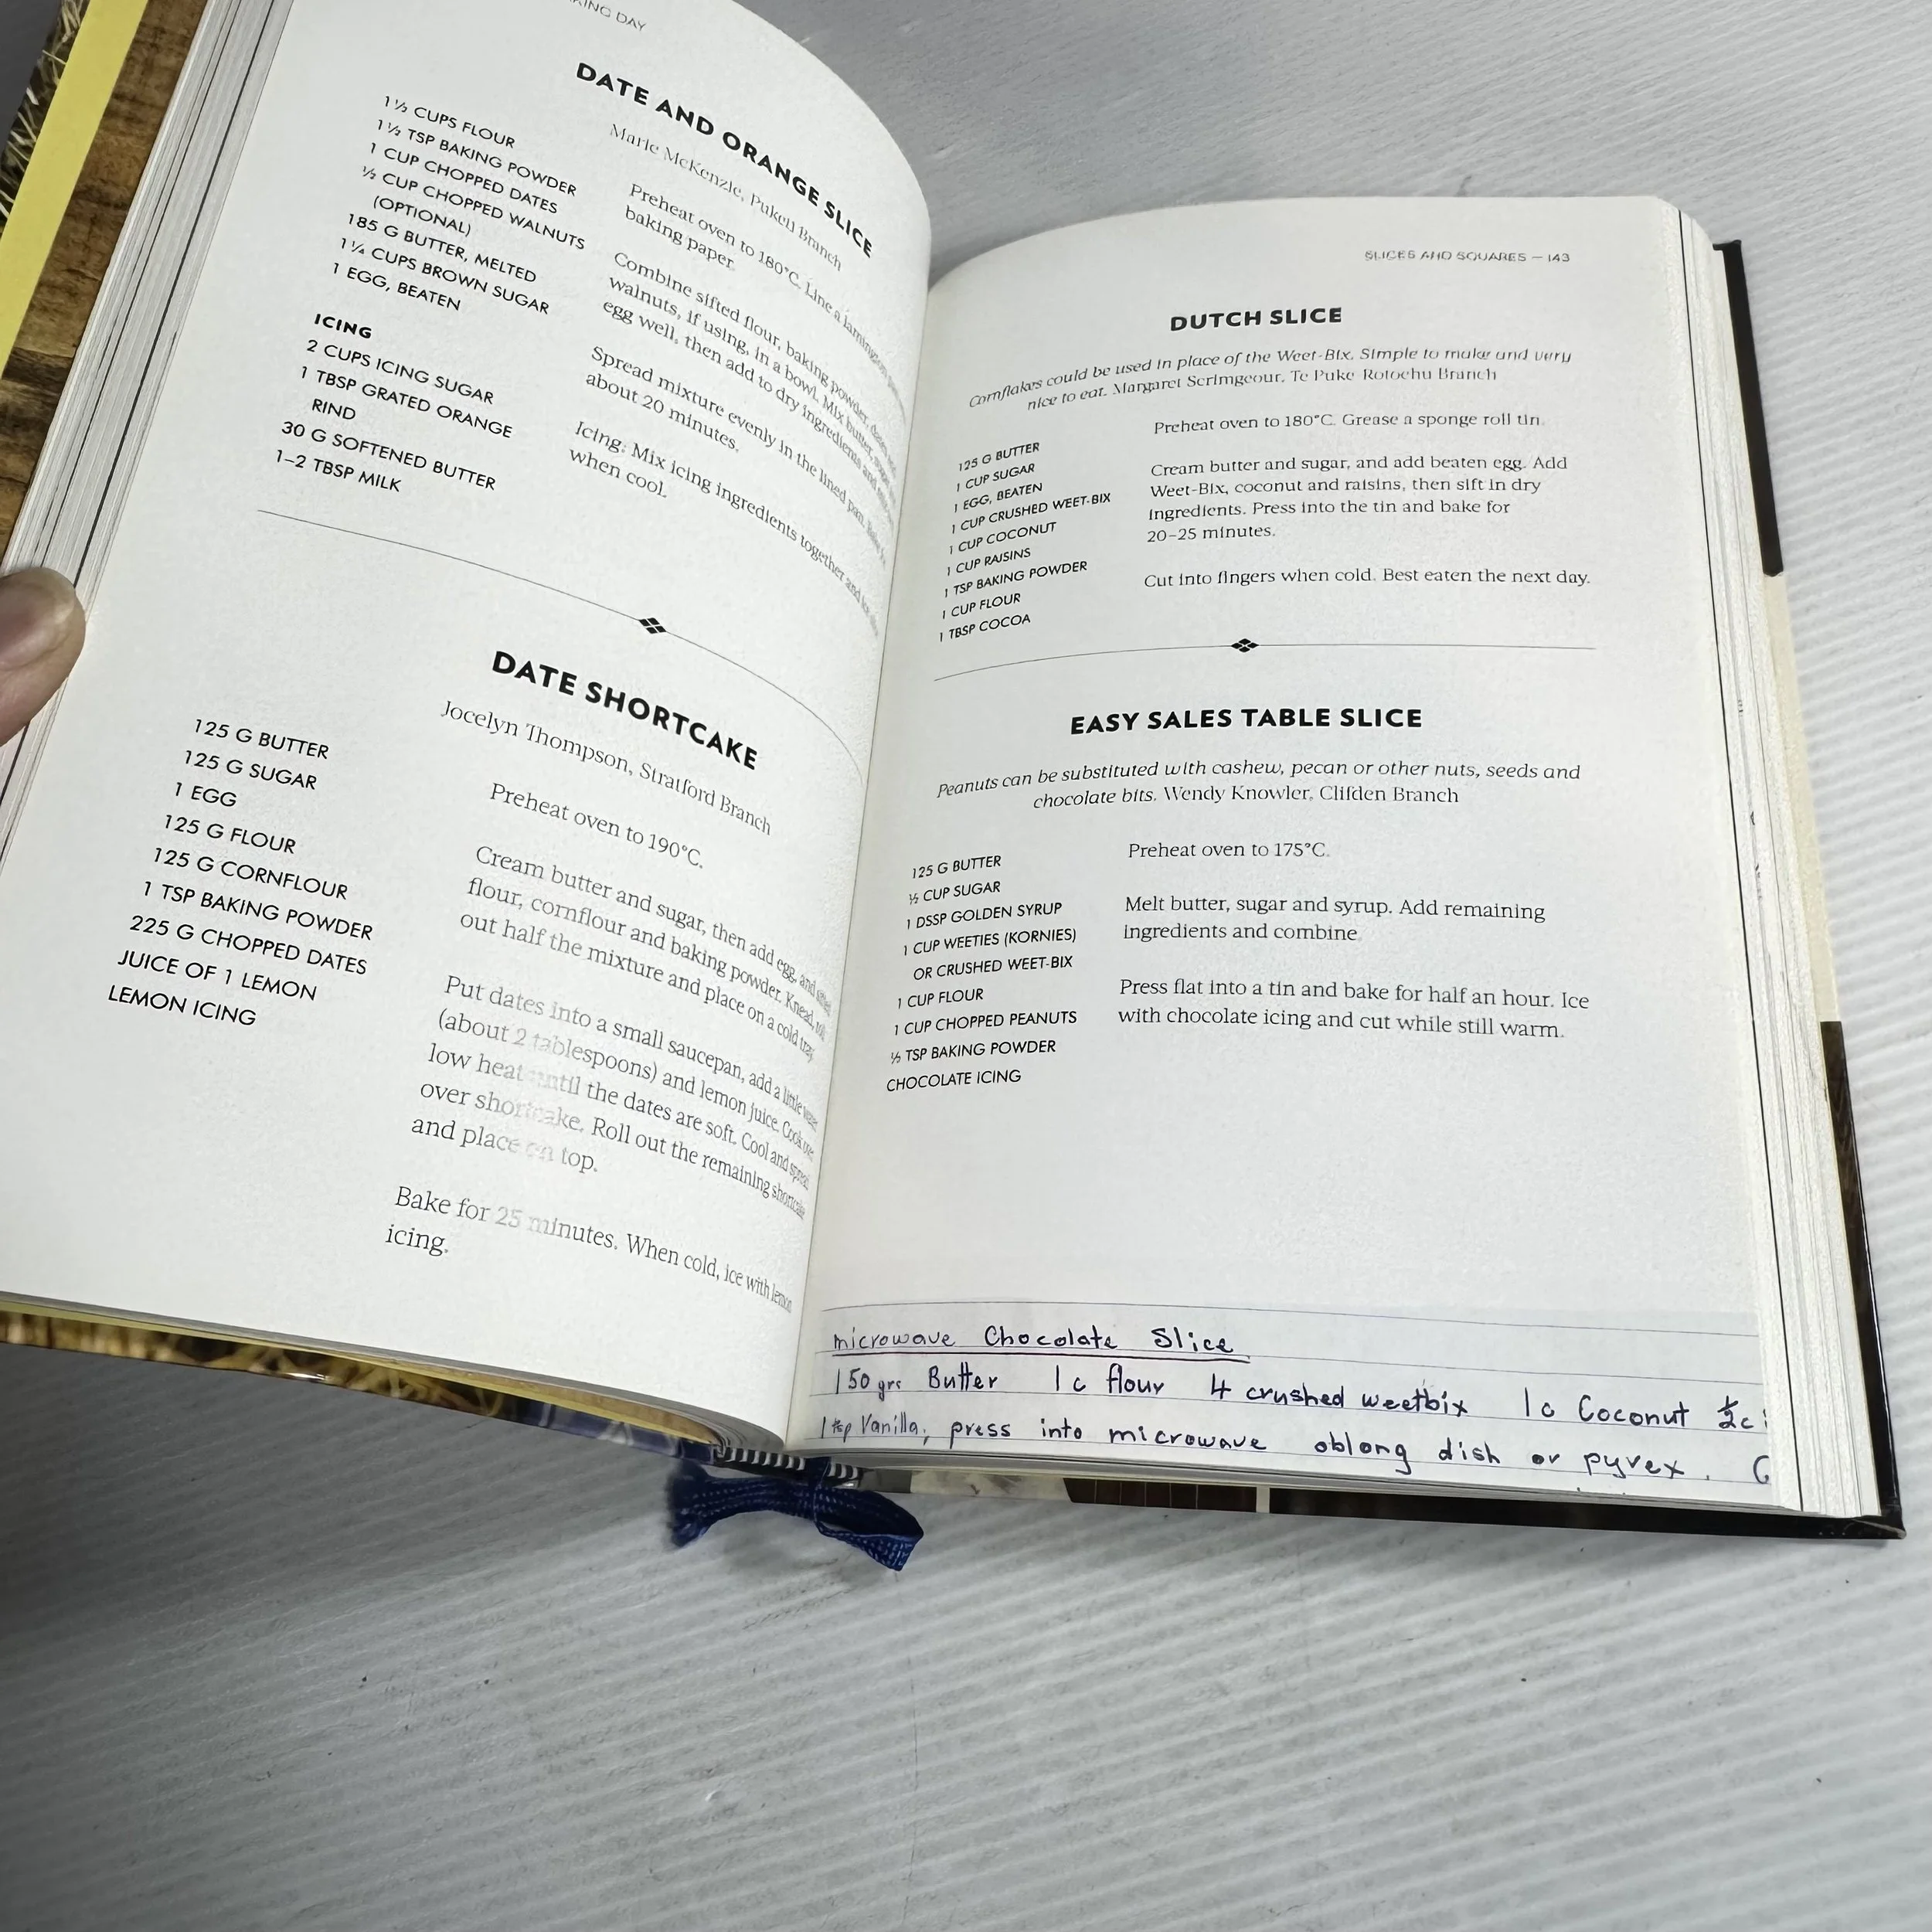 KING DAY
DATE AND ORANGE SLICE
Marie McKenzie, Pukeu Branch
1 ½ CUPS FLOUR
1 ½ TSP BAKING POWDER
1 CUP CHOPPED DATES
½ CUP CHOPPED WALNUTS
(OPTIONAL)
185 G BUTTER, MELTED
1 ¼ CUPS BROWN SUGAR
1 EGG, BEATEN
ICING
2 CUPS ICING SUGAR
1 TBSP GRATED ORANGE
RIND
30 G SOFTENED BUTTER
1–2 TBSP MILK
Preheat oven to 180°C. Line a lamington
baking paper.
Combine sifted flour, baking powder, dates
walnuts, if using, in a bowl. Mix butter, sugar
egg well, then add to dry ingredients and
Spread mixture evenly in the lined pan. Bake
about 20 minutes.
Icing: Mix icing ingredients together and
when cool.
DATE SHORTCAKE
Jocelyn Thompson, Stratford Branch
125 G BUTTER
125 G SUGAR
1 EGG
125 G FLOUR
125 G CORNFLOUR
1 TSP BAKING POWDER
225 G CHOPPED DATES
JUICE OF 1 LEMON
LEMON ICING
Preheat oven to 190°C.
Cream butter and sugar, then add egg, and sifted
flour, cornflour and baking powder. Knead, roll
out half the mixture and place on a cold tray.
Put dates into a small saucepan, add a little water
(about 2 tablespoons) and lemon juice. Cook over
low heat until the dates are soft. Cool and spread
over shortcake. Roll out the remaining shortcake
and place on top.
Bake for 25 minutes. When cold, ice with lemon
icing.
SLICES AND SQUARES – 143
DUTCH SLICE
Cornflakes could be used in place of the Weet-Bix. Simple to make and very
nice to eat. Margaret Scrimgeour, Te Puke Rotoehu Branch
125 G BUTTER
1 CUP SUGAR
1 EGG, BEATEN
1 CUP CRUSHED WEET-BIX
1 CUP COCONUT
1 CUP RAISINS
1 TSP BAKING POWDER
1 CUP FLOUR
1 TBSP COCOA
Preheat oven to 180°C. Grease a sponge roll tin.
Cream butter and sugar, and add beaten egg. Add
Weet-Bix, coconut and raisins, then sift in dry
ingredients. Press into the tin and bake for
20–25 minutes.
Cut into fingers when cold. Best eaten the next day.
EASY SALES TABLE SLICE
Peanuts can be substituted with cashew, pecan or other nuts, seeds and
chocolate bits. Wendy Knowler, Clifden Branch
125 G BUTTER
½ CUP SUGAR
1 DSSP GOLDEN SYRUP
1 CUP WEETIES (KORNIES)
OR CRUSHED WEET-BIX
1 CUP FLOUR
1 CUP CHOPPED PEANUTS
½ TSP BAKING POWDER
CHOCOLATE ICING
Preheat oven to 175°C.
Melt butter, sugar and syrup. Add remaining
ingredients and combine.
Press flat into a tin and bake for half an hour. Ice
with chocolate icing and cut while still warm.
microwave Chocolate Slice
150 grs Butter 1c flour 4 crushed weetbix 1c Coconut ½c
1 tsp Vanilla, press into microwave oblong dish or pyrex.